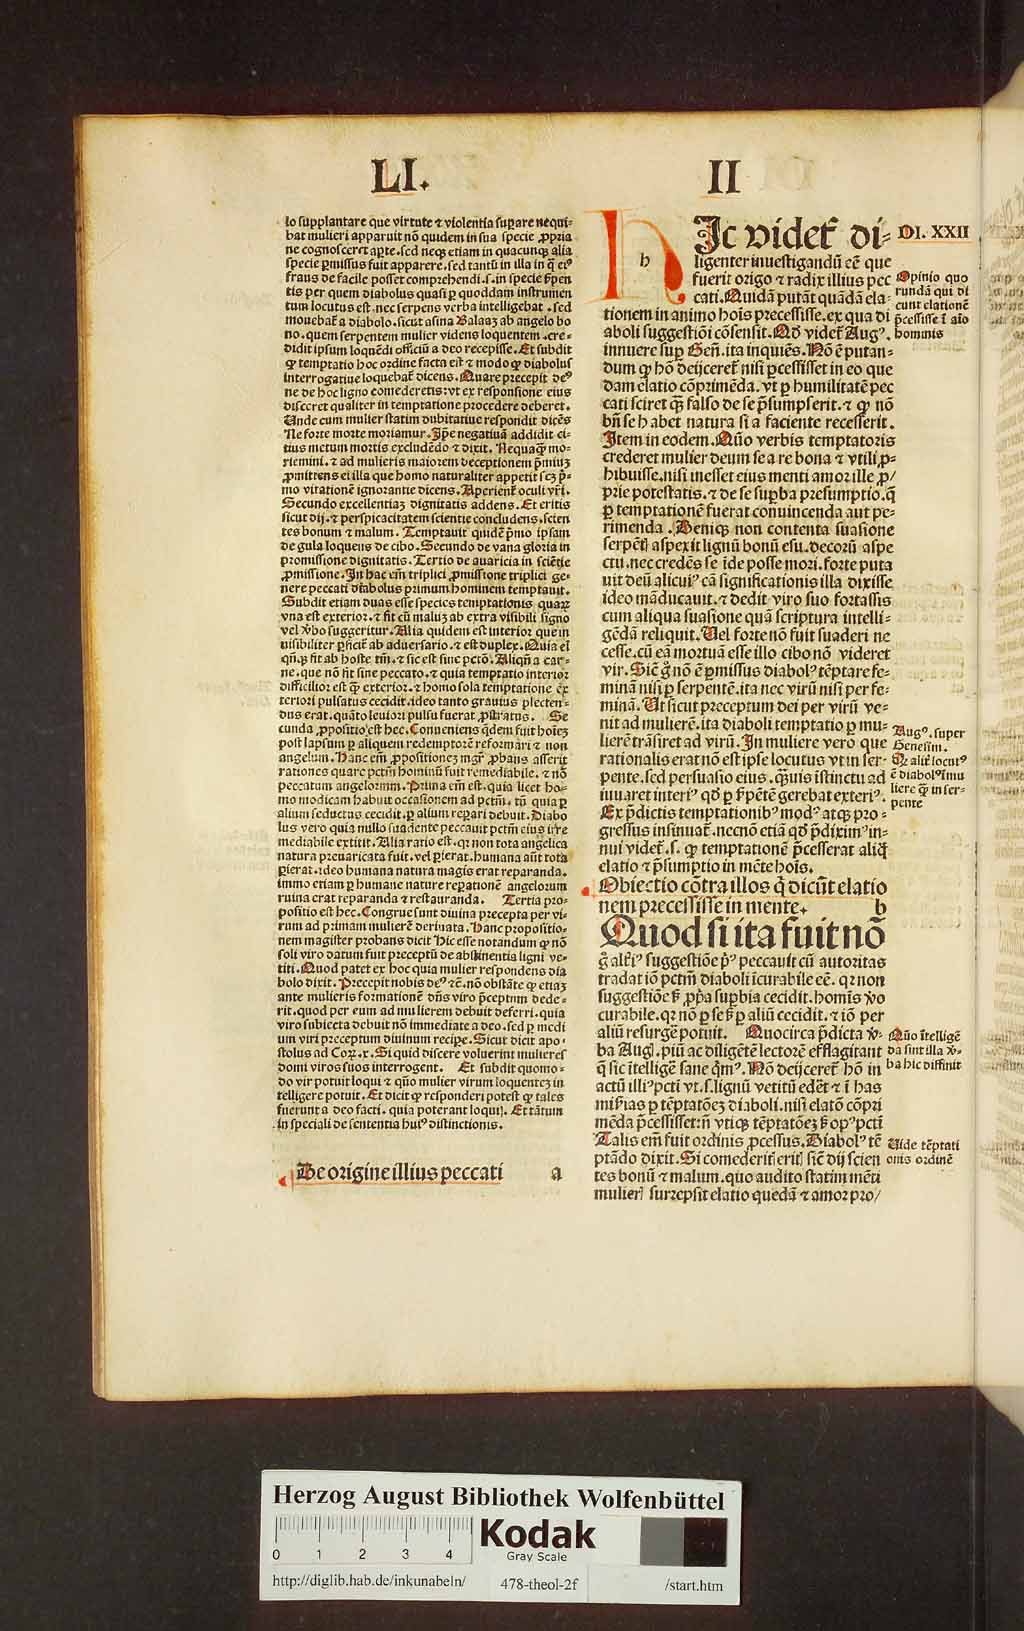 LI.
II
lo supplantare que virtute ⁊ violentia suꝑare nequi⸗
bat mulieri apparuit nõ quidem in sua specie ꝓpꝛia
ne cognosceret aꝑte. sed neqꝫ etiam in quacunqꝫ alia
specie ꝑmissus fuit apparere. sed tantũ in illa in q̃ eiꝰ
fraus de facile posset comprehendi. s. in specie ẜpen
tis per quem diabolus quasi ꝑ quoddam instrumen
tum locutus est. nec serpens verba intelligebat. sed
mouebat᷑ a diabolo. sicut asina Balaaꝫ ab angelo bo
no. quem serpentem mulier videns loquentem. cre⸗
didit ipsum loquẽdi officiũ a deo recepisse. Et subdit
ꝙ temptatio hoc ordine facta est ⁊ modo ꝙ diabolus
interrogatiue loquebat᷑ dicens. Quare precepit deꝰ
ne de hoc ligno comederetis: vt ex responsione eius
disceret qualiter in temptatione procedere deberet.
Unde cum mulier statim dubitatiue respondit dicẽs
Ne forte morte moriamur. Ip̃e negatiuã addidit ci⸗
tius metum mortis excludẽdo ⁊ dixit. Nequaqꝫ mo⸗
riemini. ⁊ ad mulieris maiorem deceptionem p̃miuꝫ
ꝓmittens ei illa que homo naturaliter appetit scꝫ p̃⸗
mo vitationẽ ignorantie dicens. Aperient᷑ oculi vr̃i.
Secundo excellentiaꝫ dignitatis addens. Et eritis
sicut dij. ⁊ perspicacitatem scientie concludens. scien
tes bonum ⁊ malum. Temptauit quidẽ p̃mo ipsam
de gula loquens de cibo. Secundo de vana gloria in
promissione dignitatis. Tertio de auaricia in sciẽtie
ꝓmissione. In hac em̃ triplici ꝓmissione triplici ge⸗
nere peccati diabolus primum hominem temptauit.
Subdit etiam duas esse species temptationis quaꝝ
vna est exterior. ⁊ fit cũ maluꝫ ab extra visibili signo
vel v̾bo suggeritur. Alia quidem est interior que in
uisibiliter ꝑficit᷑ ab aduersario. ⁊ est duplex. Quia el
qñqꝫ fit ab hoste tm̃. ⁊ sic est sine pctõ. Aliqñ a car⸗
ne. que nõ fit sine peccato. ⁊ quia temptatio interior
difficilior est qꝫ exterior. ⁊ homo sola temptatione ex̃
teriori pulsatus cecidit. ideo tanto grauius plecten⸗
dus erat. quãto leuiori pulsu fuerat ꝓstratus. Se
cunda ꝓpositio est hec. Conueniens q̃dem fuit hoĩeꝫ
post lapsum ꝑ aliquem redemptorẽ reformari ⁊ non
angelum. Hanc em̃ ꝓpositioneꝫ mg̃r ꝓbans asserit
rationes quare pctm̃ hominũ fuit remediabile. ⁊ nõ
peccatum angelorum. Prima em̃ est. quia licet ho⸗
mo modicam habuit occasionem ad pctm̃. tñ quia ꝑ
alium seductus cecidit. ꝑ alium reꝑari debuit. Diabo
lus vero quia nullo suadente peccauit pctm̃ eius irre
mediabile extitit. Alia ratio est. qꝛ non tota angelica
natura preuaricata fuit. vel ꝑierat. humana aũt tota
ꝑierat. ideo humana natura magis erat reparanda.
immo etiam ꝑ humane nature reꝑationẽ angelorum
ruina erat reparanda ⁊ restauranda. Tertia pro⸗
positio est hec. Congrue sunt diuina precepta per vi⸗
rum ad primam mulierẽ deriuata. Hanc propositio⸗
nem magister probans dicit Hic esse notandum ꝙ nõ
soli viro datum fuit preceptũ de abstinentia ligni ve⸗
titi. Quod patet ex hoc quia mulier respondens dia
bolo dixit. Precepit nobis deꝰ ⁊c̃. nõ obstãte ꝙ etiaꝫ
ante mulieris formationẽ dñs viro p̃ceptum dede⸗
rit. quod per eum ad mulierem debuit deferri. quia
viro subiecta debuit nõ immediate a deo. sed ꝑ medi
um viri preceptum diuinum recipe. Sicut dicit apo⸗
stolus ad Coꝝ. x. Si quid discere voluerint mulieres
domi viros suos interrogent. Et subdit quomo⸗
do vir potuit loqui ⁊ quõ mulier virum loquenteꝫ in
telligere potuit. Et dicit ꝙ responderi potest ꝙ tales
fuerunt a deo facti. quia poterant loqui. Et tãtum
in speciali de sententia huiꝰ distinctionis.
De origine illius peccati a
h
Ic videt᷑ di⸗
ligenter inuestigandũ eẽ que
fuerit origo ⁊ radix illius pec
cati. Quidã putãt quãdã ela⸗
tionem in animo hoĩs precessisse. ex qua di
aboli suggestiõi cõsensit. Qđ videt᷑ Augꝰ.
innuere suꝑ Geñ. ita inquiẽs. Nõ ẽ putan⸗
dum ꝙ hõ deijceret᷑ nisi p̃cessisset in eo que
dam elatio cõprimẽda. vt ꝑ humilitatẽ pec
cati sciret qꝫ falso de se p̃sumpserit. ⁊ ꝙ nõ
bñ se habet natura si a faciente recesserit.
Item in eodem. Quõ verbis temptatoris
crederet mulier deum se a re bona ⁊ vtili ꝓ⸗
hibuisse. nisi inesset eius menti amor ille ꝓ/
prie potestatis. ⁊ de se suꝑba presumptio. q̃
ꝑ temptationẽ fuerat conuincenda aut pe⸗
rimenda. Deniqꝫ non contenta suasione
serpẽtꝭ aspexit lignũ bonũ esu. decorũ aspe
ctu. nec credẽs se ĩde posse mori. forte puta
uit deũ alicuiꝰ cã significationis illa dixisse
ideo mãducauit. ⁊ dedit viro suo fortassis
cum aliqua suasione quã scriptura intelli⸗
gẽdã reliquit. Uel forte nõ fuit suaderi ne
cesse. cũ eã mortuã esse illo cibo nõ videret
vir. Sic̃ g̃ nõ ẽ ꝑmissus diabolꝰ tẽptare fe⸗
minã nisi ꝑ serpentẽ. ita nec virũ nisi per fe⸗
minã. Ut sicut preceptum dei per virũ ve⸗
nit ad mulierẽ. ita diaboli temptatio ꝑ mu⸗
lierẽ trãsiret ad virũ. In muliere vero que
rationalis erat nõ est ipse locutus vt in ser⸗
pente. sed persuasio eius. qꝫuis ĩstinctu ad
iuuaret interiꝰ qđ ꝑ ẜpẽtẽ gerebat exteriꝰ.
Ex p̃dictis temptationibꝰ modꝰ atqꝫ pro⸗
gressus insinuat᷑. necnõ etiã qđ p̃diximꝰ in⸗
nui videt᷑. s. ꝙ temptationẽ p̃cesserat aliq̃
elatio ⁊ p̃sumptio in mẽte hoĩs.
Obiectio cõtra illos q̃ dicũt elatio
nem precessisse in mente. b
Quod si ita fuit nõ
g̃ alt᷑iꝰ suggestiõe pꝰ̃ peccauit cũ autoritas
tradat iõ pctm̃ diaboli ĩcurabile eẽ. qꝛ non
suggestiõe ẜ ꝓpa suꝑbia cecidit. homĩs v̾o
curabile. qꝛ nõ ꝑ se ẜ ꝑ aliũ cecidit. ⁊ iõ per
aliũ resurgẽ potuit. Quocirca p̃dicta v̾⸗
ba Augꝭ. piũ ac diligẽtẽ lectorẽ efflagitant
q̃ sic ĩtelligẽ sane q̃mꝰ. Nõ deijceret᷑ hõ in
actũ illiꝰ pcti vt. s. lignũ vetitũ edẽt ⁊ ĩ has
mĩẜias ꝑ tẽptatõeꝫ diaboli. nisi elatõ cõpri
mẽda p̃cessisset: ñ vtiqꝫ tẽptatõeꝫ ẜ opꝰ pcti
Talis em̃ fuit ordinis ꝓcessus. Diabolꝰ tẽ
ptãdo dixit. Si comederitꝭ eritꝭ sic̃ dij scien
tes bonũ ⁊ malum. quo audito statim mẽti
mulierꝭ surrepsit elatio quedã ⁊ amor pro/
DI. XXII
Opinio quo
rundã qui di
cunt elationẽ
p̃cessisse ĩ aĩo
hominis
Augꝰ. super
Genesim.
Qꝛ alit᷑ locutꝰ
ẽ diabolꝰ ĩ mu
liere ꝙ in ser⸗
pente
Quõ ĩtelligẽ
da sint illa v̾⸗
ba hic diffinit
Uide tẽptati
onis ordinẽ
Herzog August Bibliothek Wolfenbüttel
0 1 2 3 4
Kodak
Gray Scale
http://diglib.hab.de/inkunabeln/ 478-theol-2f /start.htm